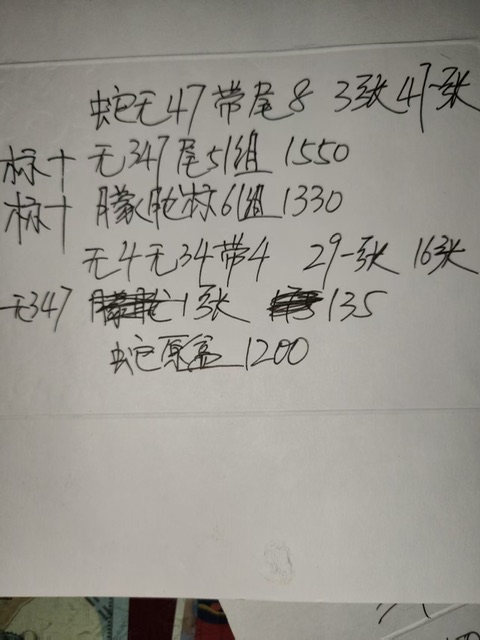 蛇无47带尾8 3张47一张
标十 无347尾51组 1550
标十 朦胧标61组1330
无4无34带4 29一张 16张
无347 1张 135
蛇原盒1200